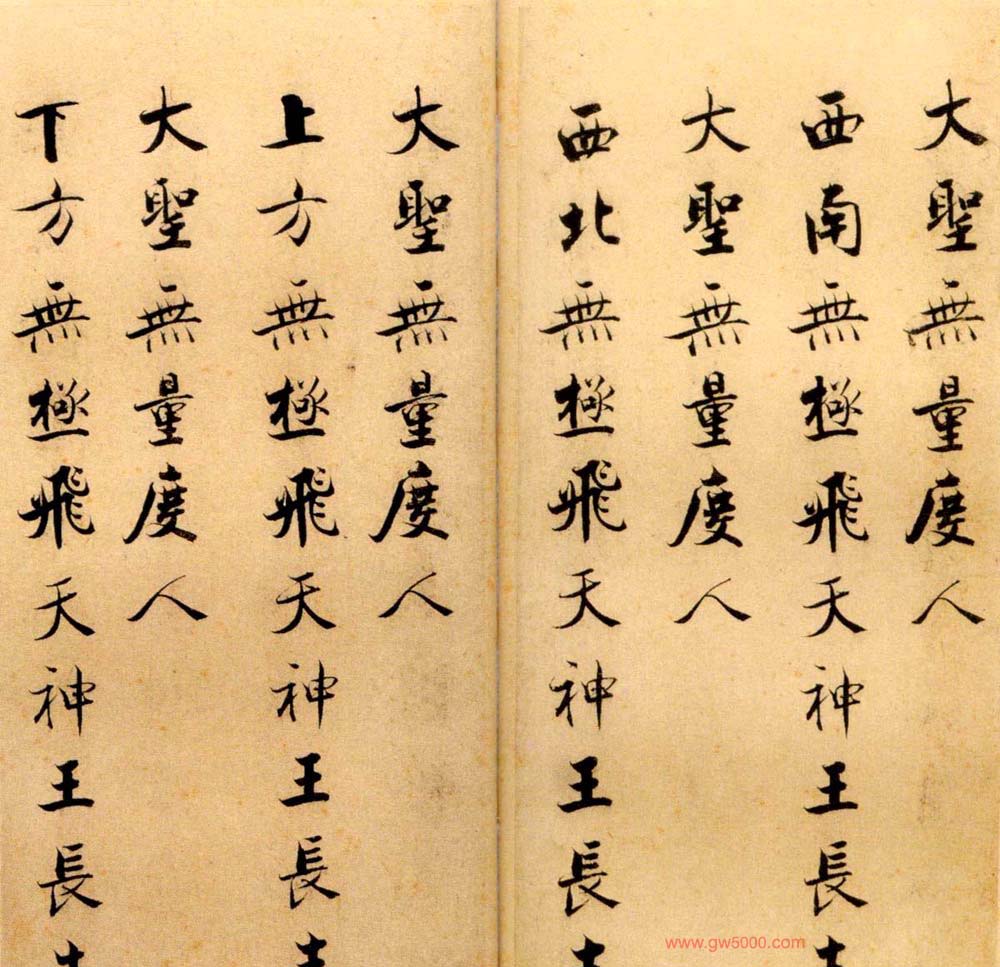 大聖無量度人
西南無極飛天神王長
大聖無量度人
西北無極飛天神王長
大聖無量度人
上方無極飛天神王長
大聖無量度人
下方無極飛天神王長
www.gw5000.com